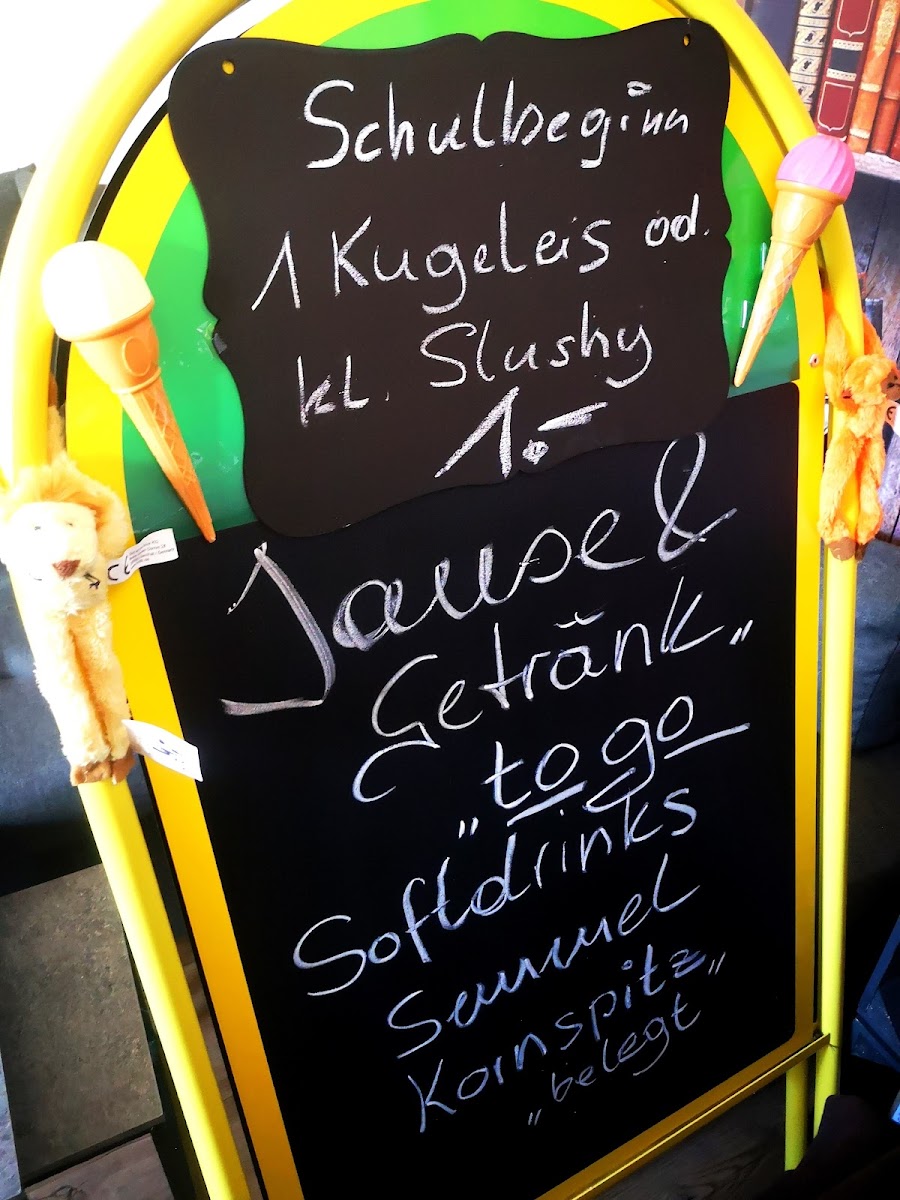 Schulbeginn
1 Kugeleis od.
kl. Slushy
1.-
Jause &
Getränk „
„to go
Softdrinks
Semmel
Kornspitz „
„belegt